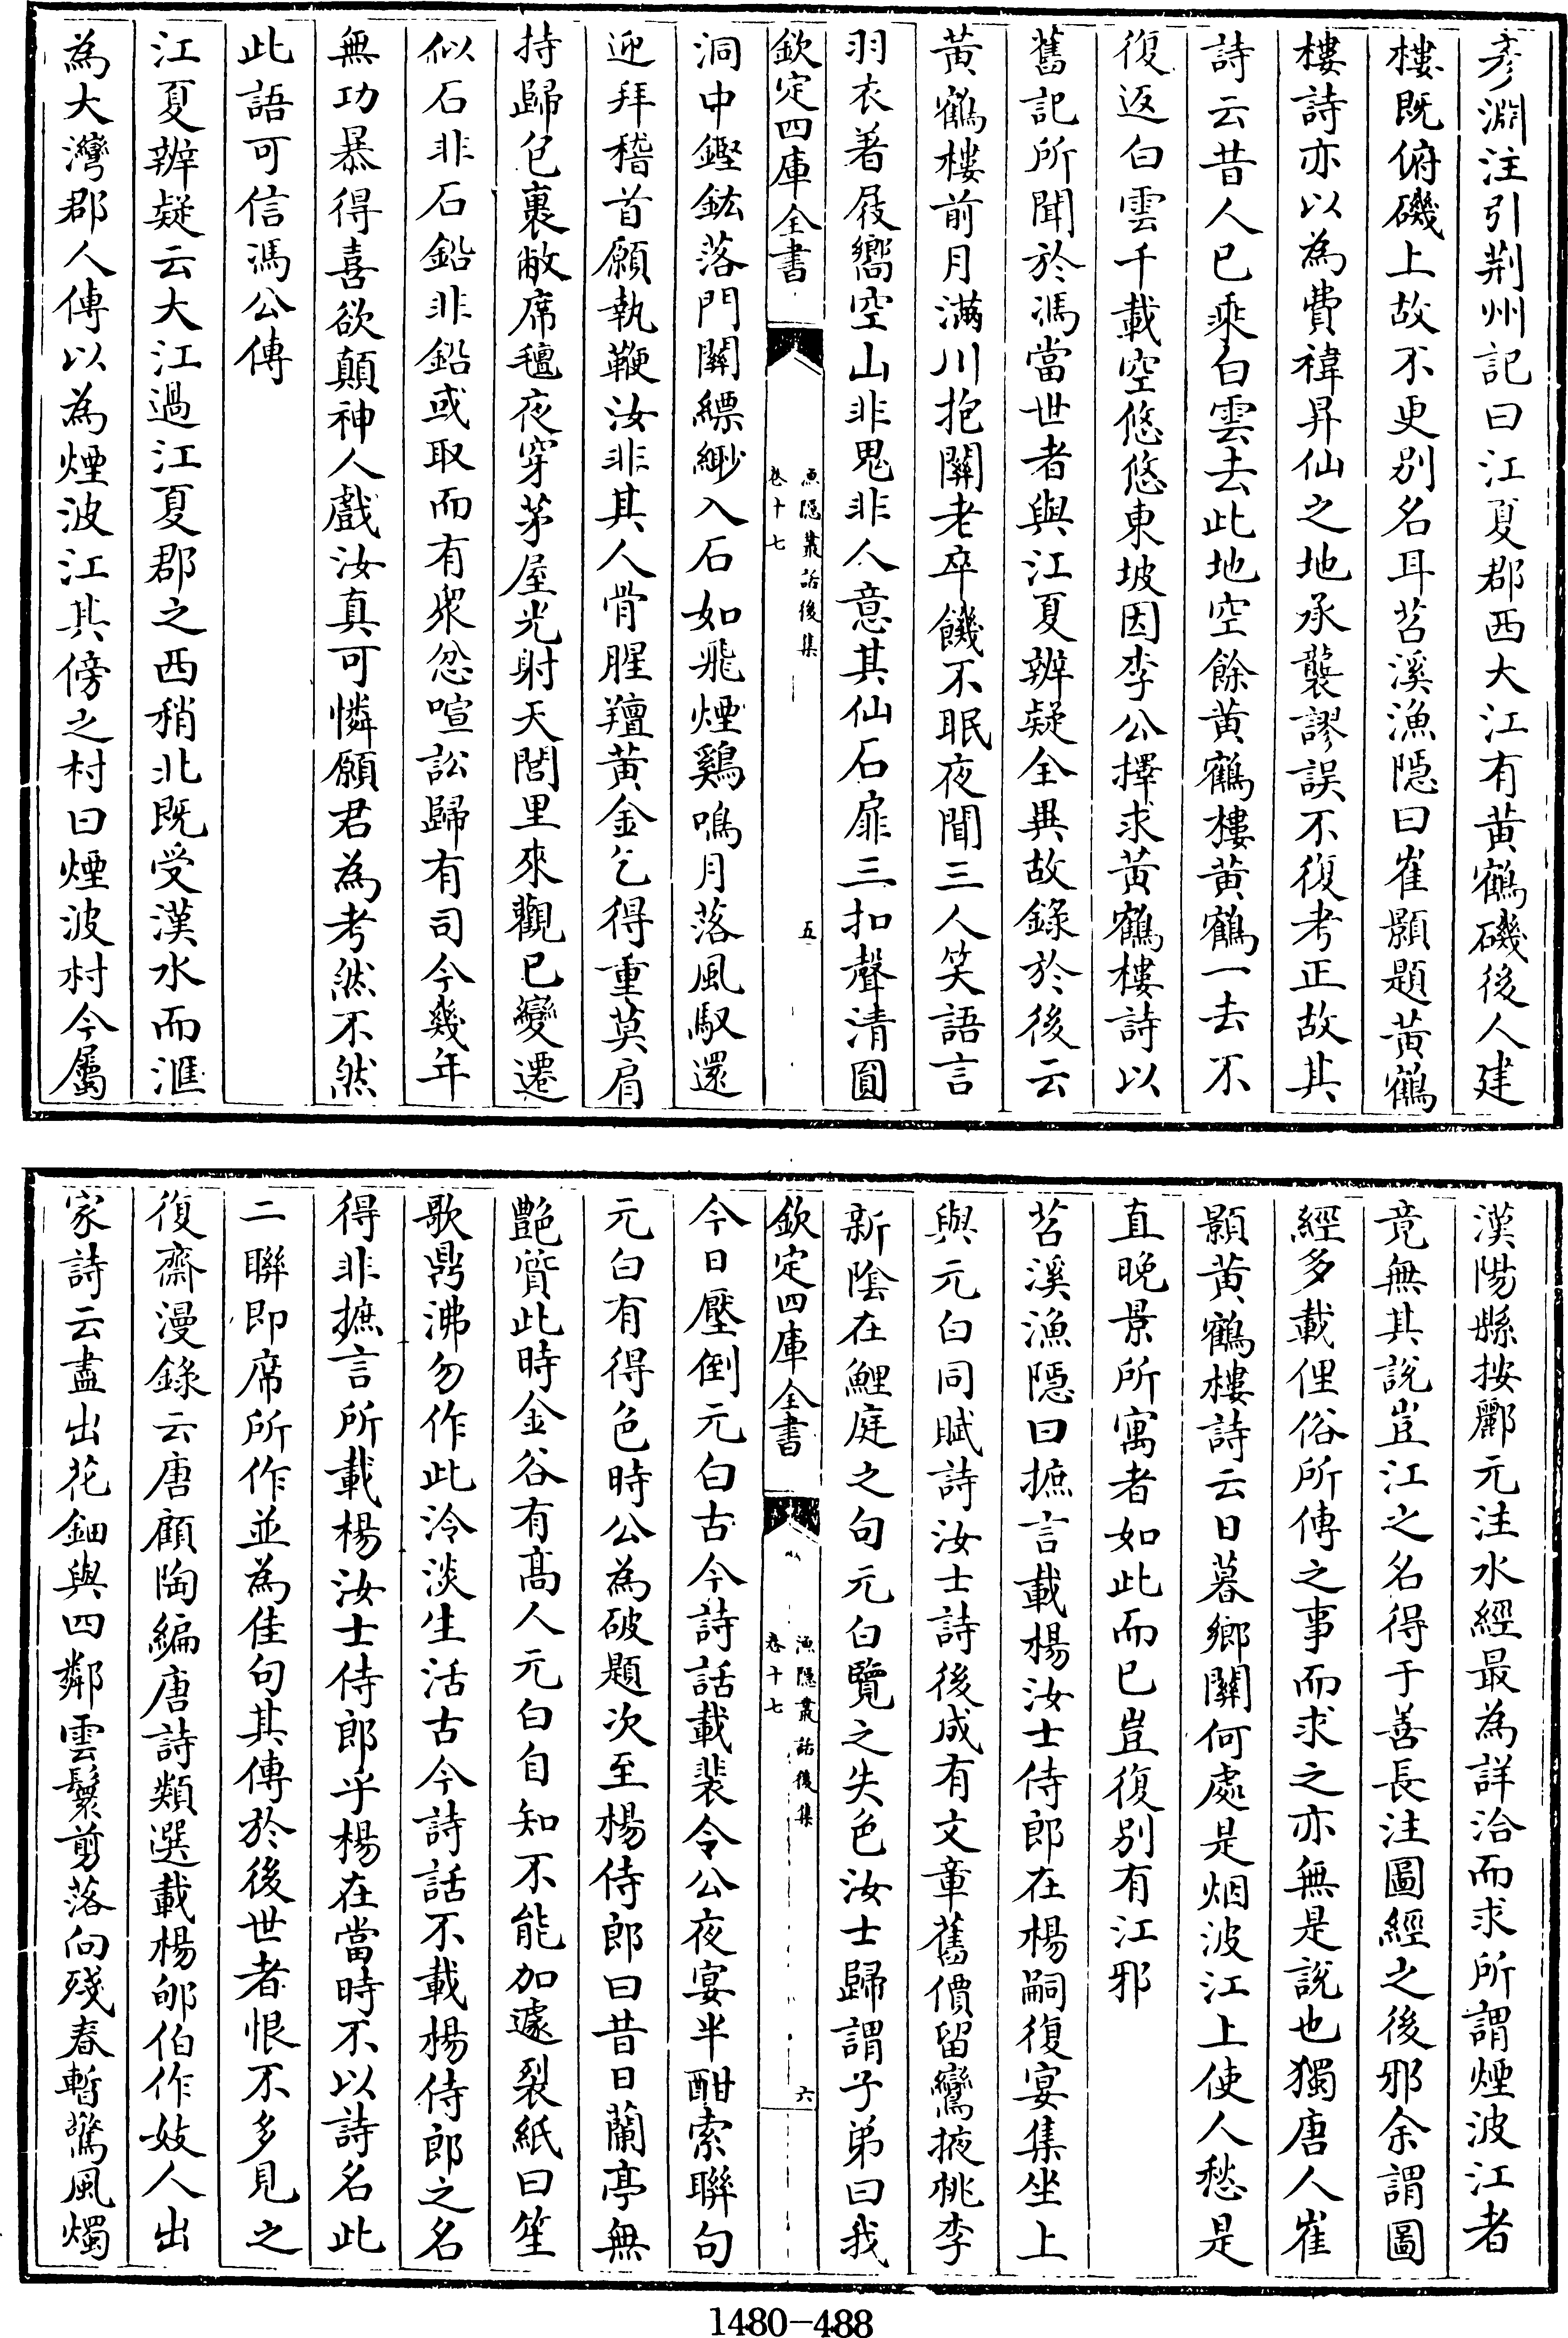 彦淵注引荆州記曰江夏郡西大江有黄鶴磯後人建
樓既俯磯上故不更别名耳苕溪漁隱曰崔顥題黄鶴
樓詩亦以為費禕昇仙之地承襲謬誤不復考正故其
詩云昔人已乘白雲去此地空餘黄鶴樓黄鶴一去不
復返白雲千載空悠悠東坡因李公擇求黄鶴樓詩以
舊記所聞於馮當世者與江夏辨疑全異故錄於後云
黄鶴樓前月滿川抱關老卒饑不眠夜聞三人笑語言
羽衣著屐嚮空山非鬼非人意其仙石扉三扣聲清圓
欽定四庫全書
漁隱叢話後集
卷十七
五
洞中鏗鈜落門關縹緲入石如飛煙鷄鳴月落風馭還
迎拜稽首願執鞭汝非其人骨腥羶黄金乞得重莫肩
持歸包裹敝席氊夜穿茅屋光射天閭里來觀已變遷
似石非石鉛非鉛或取而有衆忿喧訟歸有司今幾年
無功暴得喜欲顛神人戲汝真可憐願君為考然不然
此語可信馮公傳
江夏辨疑云大江過江夏郡之西稍北既受漢水而滙
為大灣郡人傳以為煙波江其傍之村曰煙波村今屬
漢陽縣按酈元注水經最為詳洽而求所謂煙波江者
竟無其說豈江之名得于善長注圖經之後邪余謂圖
經多載俚俗所傳之事而求之亦無是說也獨唐人崔
顥黄鶴樓詩云日暮鄉關何處是烟波江上使人愁是
直晚景所寓者如此而已豈復别有江邪
苕溪漁隱曰摭言載楊汝士侍郎在楊嗣復宴集坐上
與元白同賦詩汝士詩後成有文章舊價留鸞掖桃李
新陰在鯉庭之句元白覽之失色汝士歸謂子弟曰我
欽定四庫全書
漁隱叢話後集
卷十七
六
今日壓倒元白古今詩話載裴令公夜宴半酣索聯句
元白有得色時公為破題次至楊侍郎曰昔日蘭亭無
艷質此時金谷有高人元白自知不能加遽裂紙曰笙
歌鼎沸勿作此泠淡生活古今詩話不載楊侍郎之名
得非摭言所載楊汝士侍郎乎楊在當時不以詩名此
二聯即席所作並為佳句其傳於後世者恨不多見之
復齋漫錄云唐顧陶編唐詩類選載楊郇伯作妓人出
家詩云盡出花鈿與四鄰雲鬟剪落向殘春暫驚風燭
1480-488